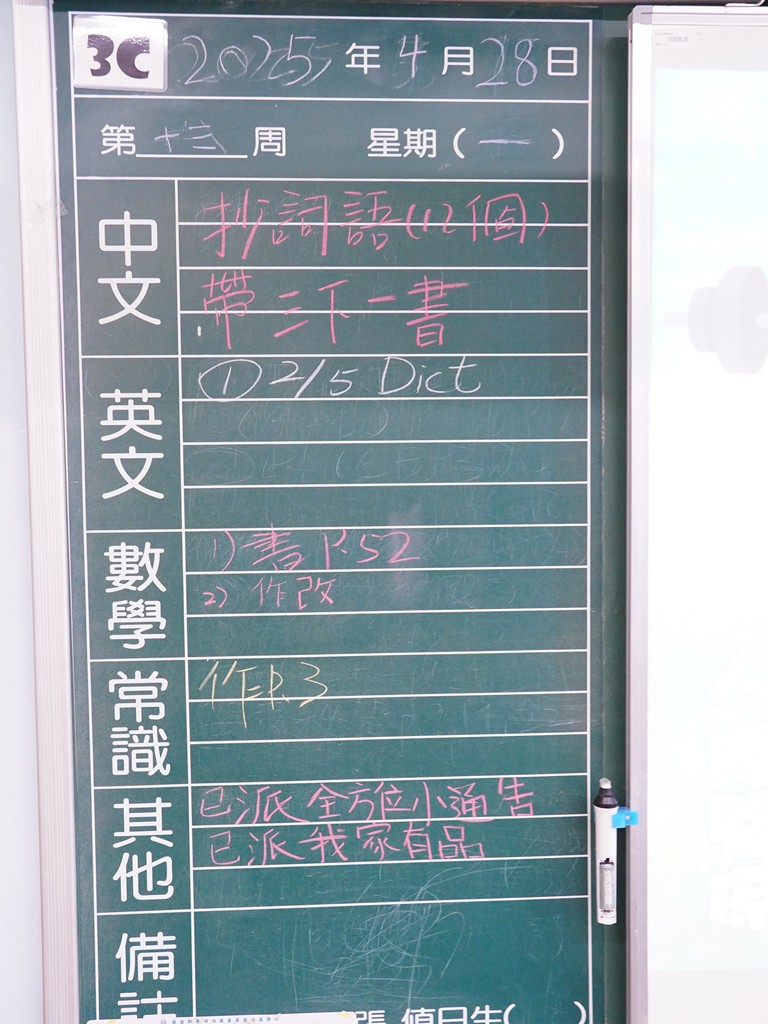 3C 2025年4月28日
第十三周 星期(一)
中文
抄詞語(12個)
帶三下一書
英文
① 2/5 Dict
數學
1) 書 P.52
2) 作改
常識
作P.3
其他
已派全方位小通告
已派我家有品
備註
值日生( )